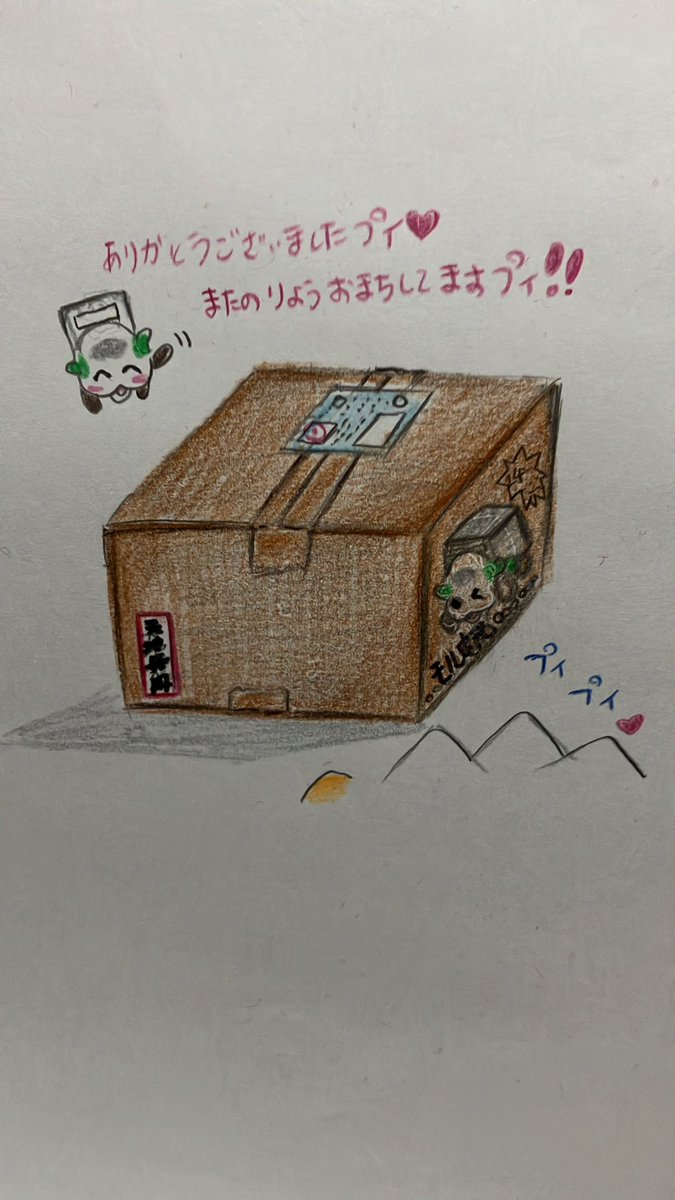 ありがとうございましたプイ♥
またのりようおまちしてますプイ!!
天地無用
モル宅配
プイ
プイ♥